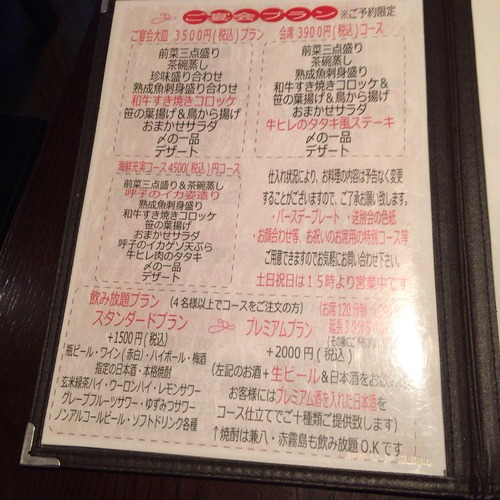 ご宴会プラン ※ご予約限定
ご宴会大皿 3500円(税込)プラン
前菜三点盛り
茶碗蒸し
珍味盛り合わせ
熟成魚刺身盛り合わせ
和牛すき焼きコロッケ
笹の葉揚げ&鳥から揚げ
おまかせサラダ
〆の一品
デザート
会席 3900円(税込)コース
前菜三点盛り
茶碗蒸し
熟成魚刺身盛り
和牛すき焼きコロッケ&
笹の葉揚げ&鳥から揚げ
おまかせサラダ
牛ヒレのタタキ風ステーキ
〆の一品
デザート
海鮮充実コース4500(税込)円コース
前菜三点盛り&茶碗蒸し
呼子のイカ姿造り
熟成魚刺盛り
和牛すき焼きコロッケ
笹の葉揚げ
おまかせサラダ
呼子のイカゲソ天ぷら
牛ヒレ肉のタタキ
〆の一品
デザート
仕入れ状況により、お料理の内容は予告なく変更
することがございますので、ご了承お願い致します。
・バースデープレート ・送別会の色紙
・お顔合わせ等、お祝いのお席用の特別コース等
ご用意できますのでお気軽にお問い合わせ下さい。
土日祝日は15時より営業中です
飲み放題プラン (4名様以上でコースをご注文の方)
(お席120分制
延長30分
スタンダードプラン
+1500円(税込)
瓶ビール・ワイン(赤白)・ハイボール・梅酒
指定の日本酒・本格焼酎
玄米緑茶ハイ・ウーロンハイ・レモンサワー
グレープフルーツサワー・ゆずみつサワー
ノンアルコールビール・ソフトドリンク各種
プレミアムプラン
+2000円(税込)
(左記のお酒+生ビール&日本酒をお
お客様にはプレミアム酒を入れた日本酒を
コース仕立てでご十種類ご提供致します)
↑焼酎は兼八・赤霧島も飲み放題O.Kです